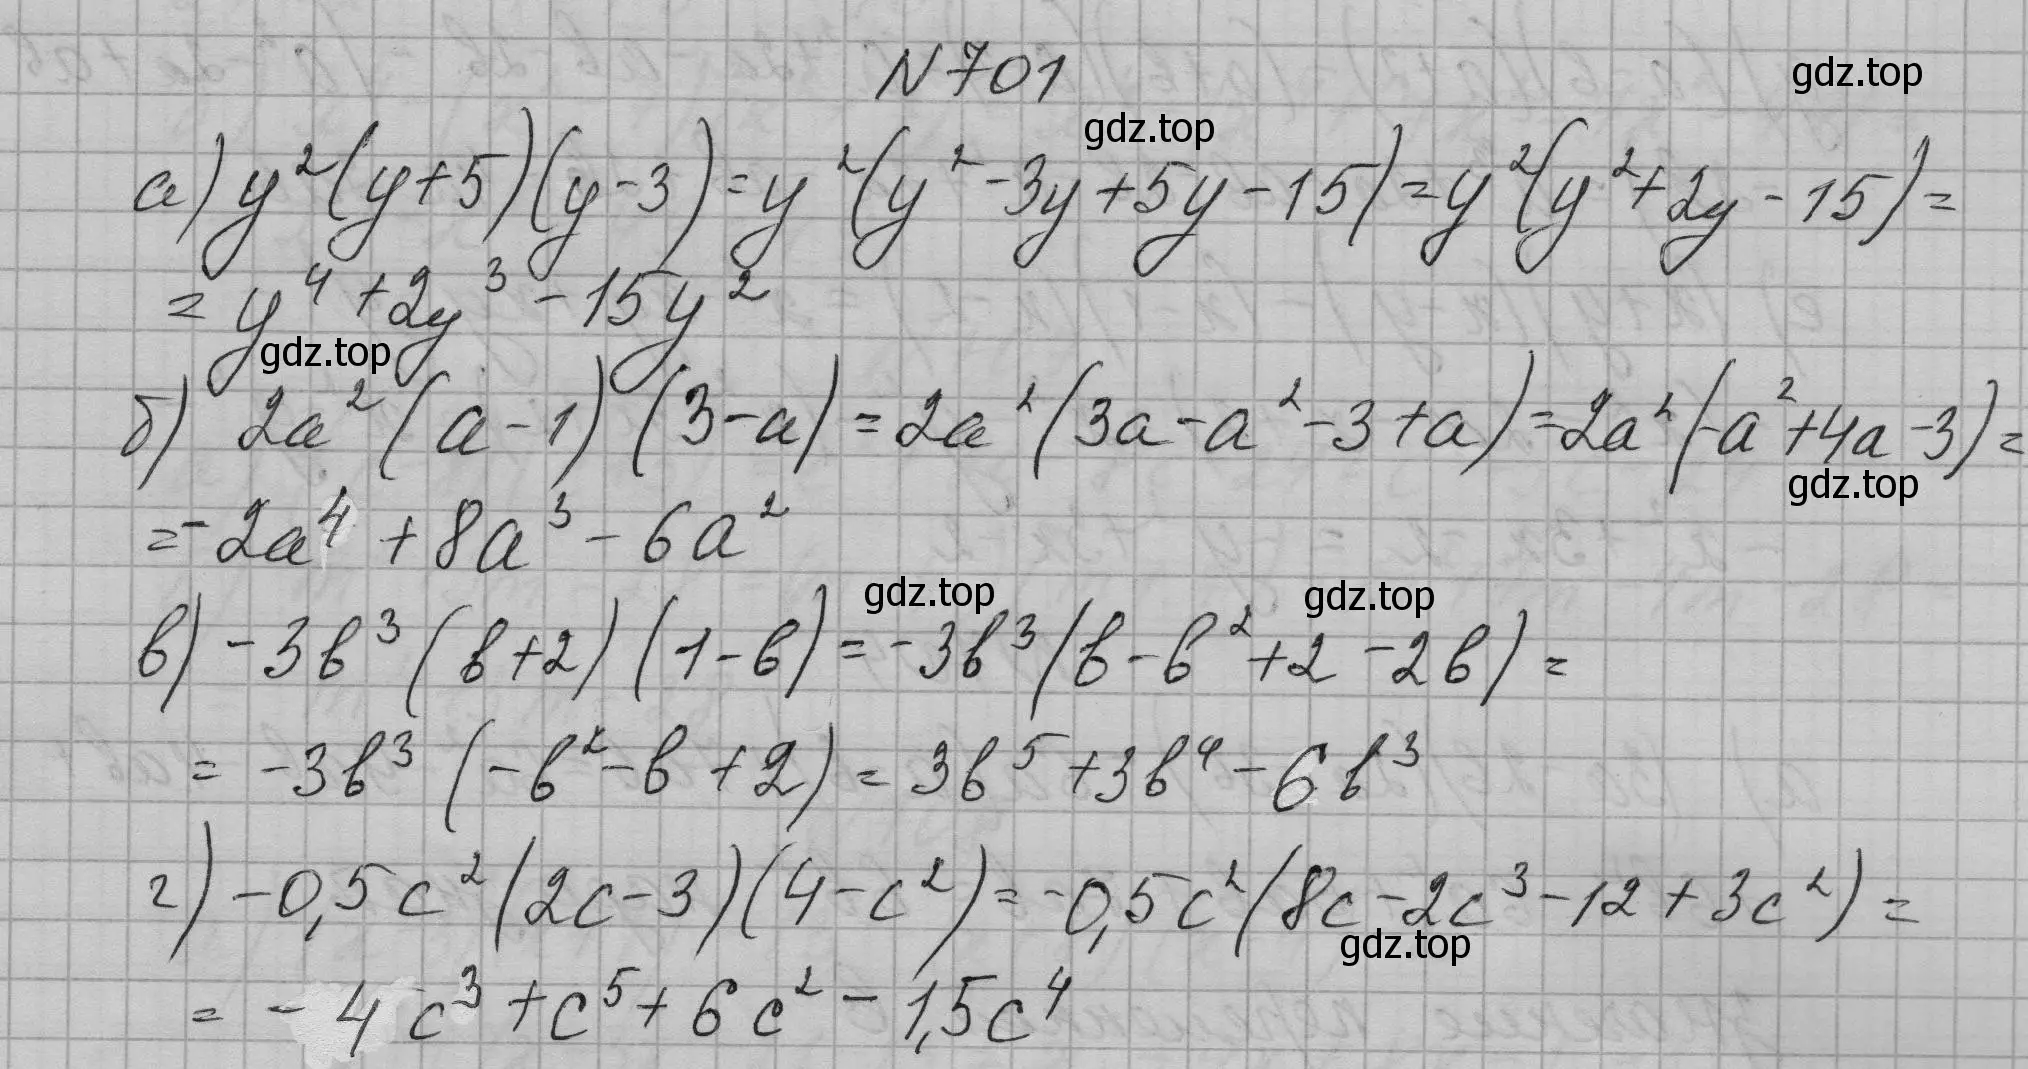 N 701
gdz.top
gdz.top
а) y²(y+5)(y-3)=y²(y²-3y+5y-15)=y²(y²+2y-15)=
=y⁴+2y³-15y²
gdz.top
б) 2a²(a-1)(3-a)=2a²(3a-a²-3+a)=2a²(-a²+4a-3)=
gdz.top
=-2a⁴+8a³-6a²
gdz.top
gdz.top
в) -3b³(b+2)(1-b)=-3b³(b-b²+2-2b)=
=-3b³(-b²-b+2)=3b⁵+3b⁴-6b³
г) -0,5c²(2c-3)(4-c²)=-0,5c²(8c-2c³-12+3c²)=
gdz.top
=-4c³+c⁵+6c²-1,5c⁴